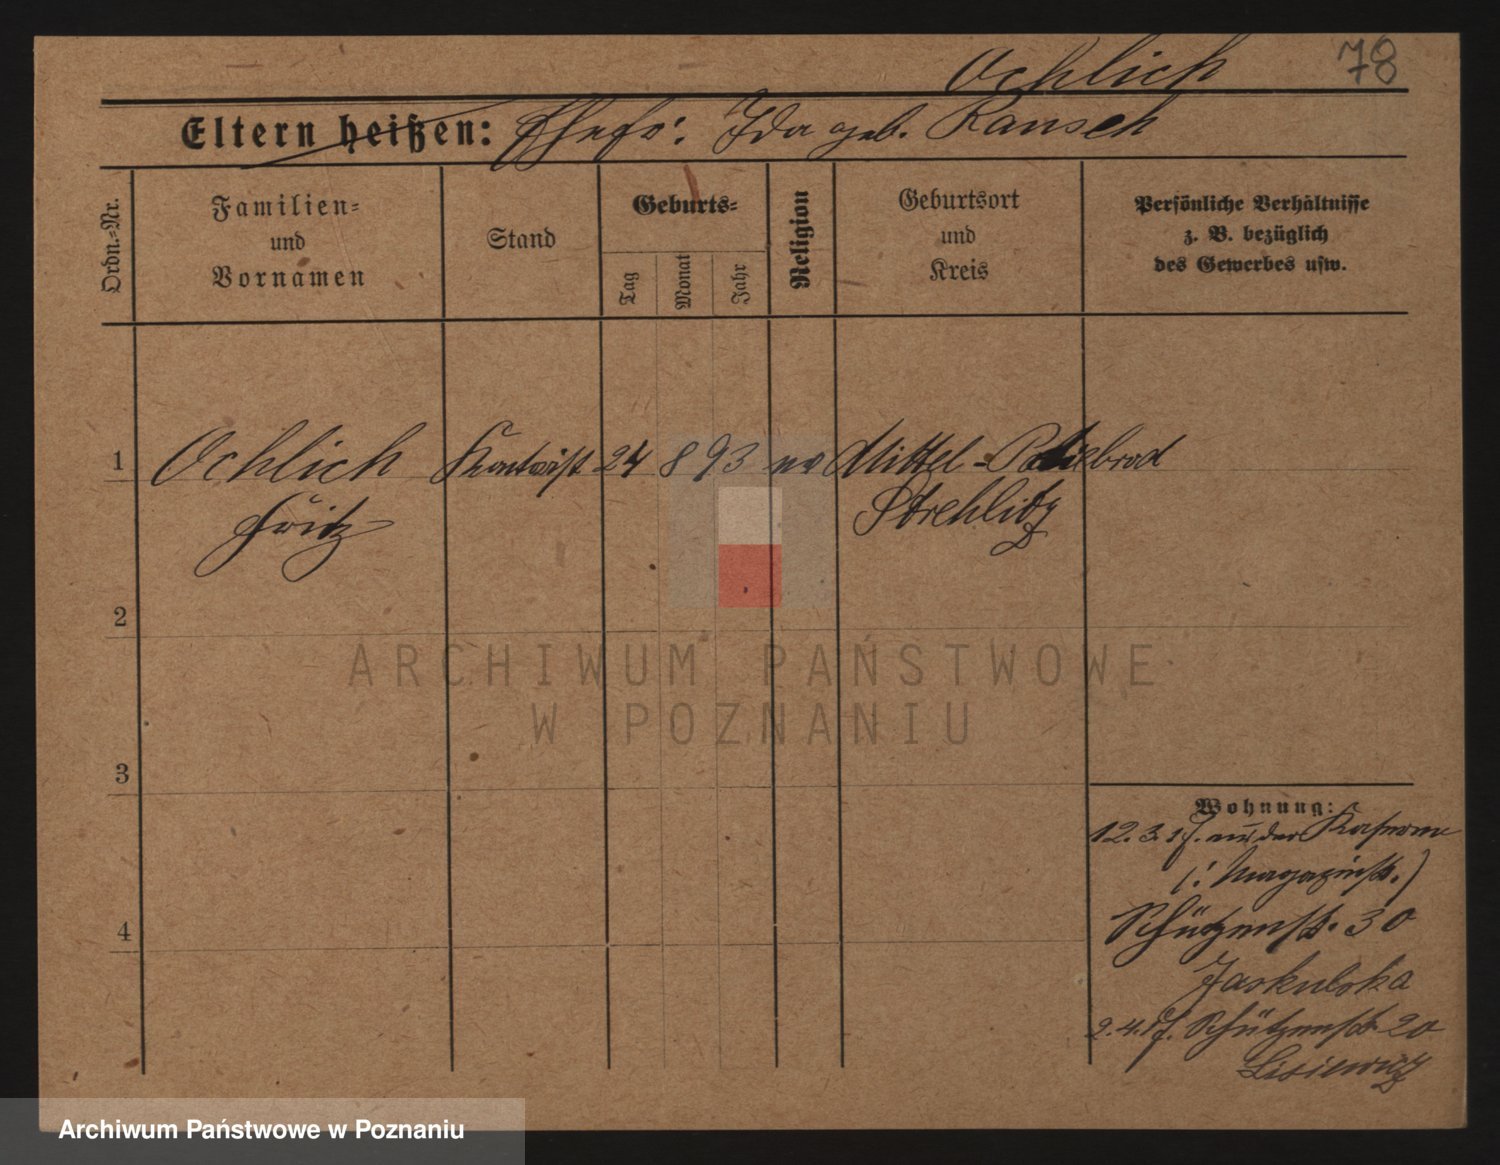 Ochlich
78
Eltern heißen: Ehefr: Ida geb. Rausch
Ordn.-Nr.
Familien-
und
Vornamen
Stand
Geburts-
Tag
Monat
Jahr
Religion
Geburtsort
und
Kreis
Persönliche Verhältnisse
z. B. bezüglich
des Gewerbes usw.
1
Ochlich
Fritz
Kontorist
24
8
93
ev
Mittel-Podiebrad
Strehlitz
2
3
4
Wohnung:
12.3.17. aus der Kaserne
(: Magazinstr.)
Schützenstr. 30
Jaskulska
2.4.17. Schützenstr 20
Lisiewicz
ARCHIWUM PAŃSTWOWE
W POZNANIU
Archiwum Państwowe w Poznaniu